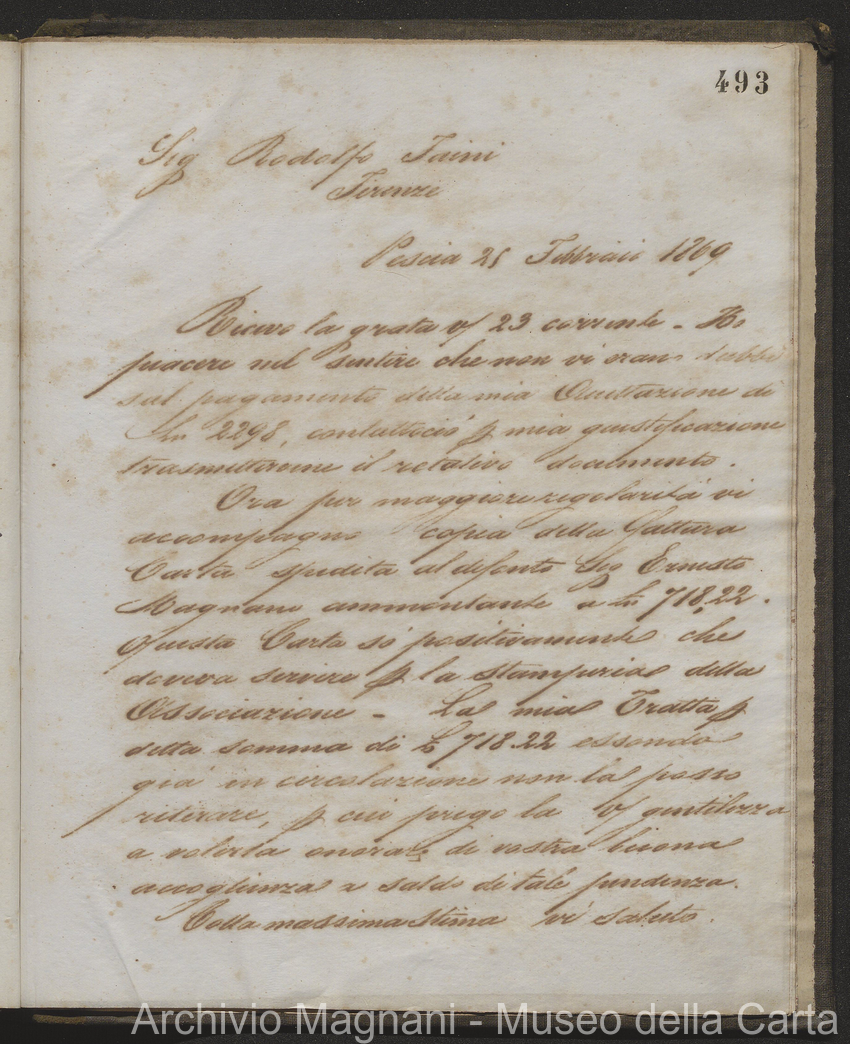 493
Sig Rodolfo Taini
Firenze
Pescia 25 Febbraio 1869
Ricevo la grata v/ 23 corrente - Ho
piacere nel sentire che non vi erano dubbi
sul pagamento della mia Quietazione di
Ln 2298, contuttociò p mia giustificazione
trasmettervene il relativo documento.
Ora per maggiore regolarità vi
accompagno copia della fattura
Carta spedita al defonto Sig Ernesto
Magnani ammontante a Ln 718,22.
Questa Carta so positivamente che
doveva servire p la stamperia della
Associazione - La mia Tratta p
detta somma di L 718.22 essendo
già in circolazione non la posso
ritirare, p cui prego la v/ gentilezza
a volerla onorare di vostra buona
accoglienza a saldo di tale pendenza.
Colla massima Stima vi saluto.
Archivio Magnani - Museo della Carta